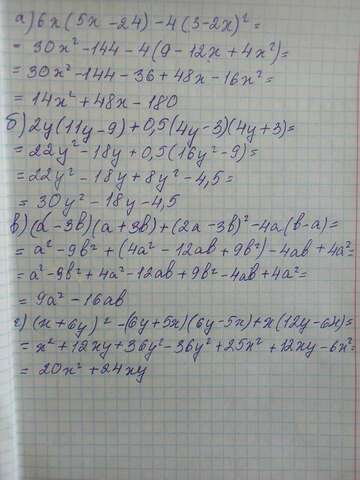 а) 6x(5x-24)-4(3-2x)²=
= 30x²-144-4(9-12x+4x²)=
= 30x²-144-36+48x-16x²=
= 14x²+48x-180
б) 2y(11y-9)+0,5(4y-3)(4y+3)=
= 22y²-18y+0,5(16y²-9)=
= 22y²-18y+8y²-4,5=
= 30y²-18y-4,5
в) (a-3b)(a+3b)+(2a-3b)²-4a(b-a)=
= a²-9b²+(4a²-12ab+9b²)-4ab+4a²=
= a²-9b²+4a²-12ab+9b²-4ab+4a²=
= 9a²-16ab
г) (x+6y)²-(6y+5x)(6y-5x)+x(12y-6x)=
= x²+12xy+36y²-36y²+25x²+12xy-6x²=
= 20x²+24xy